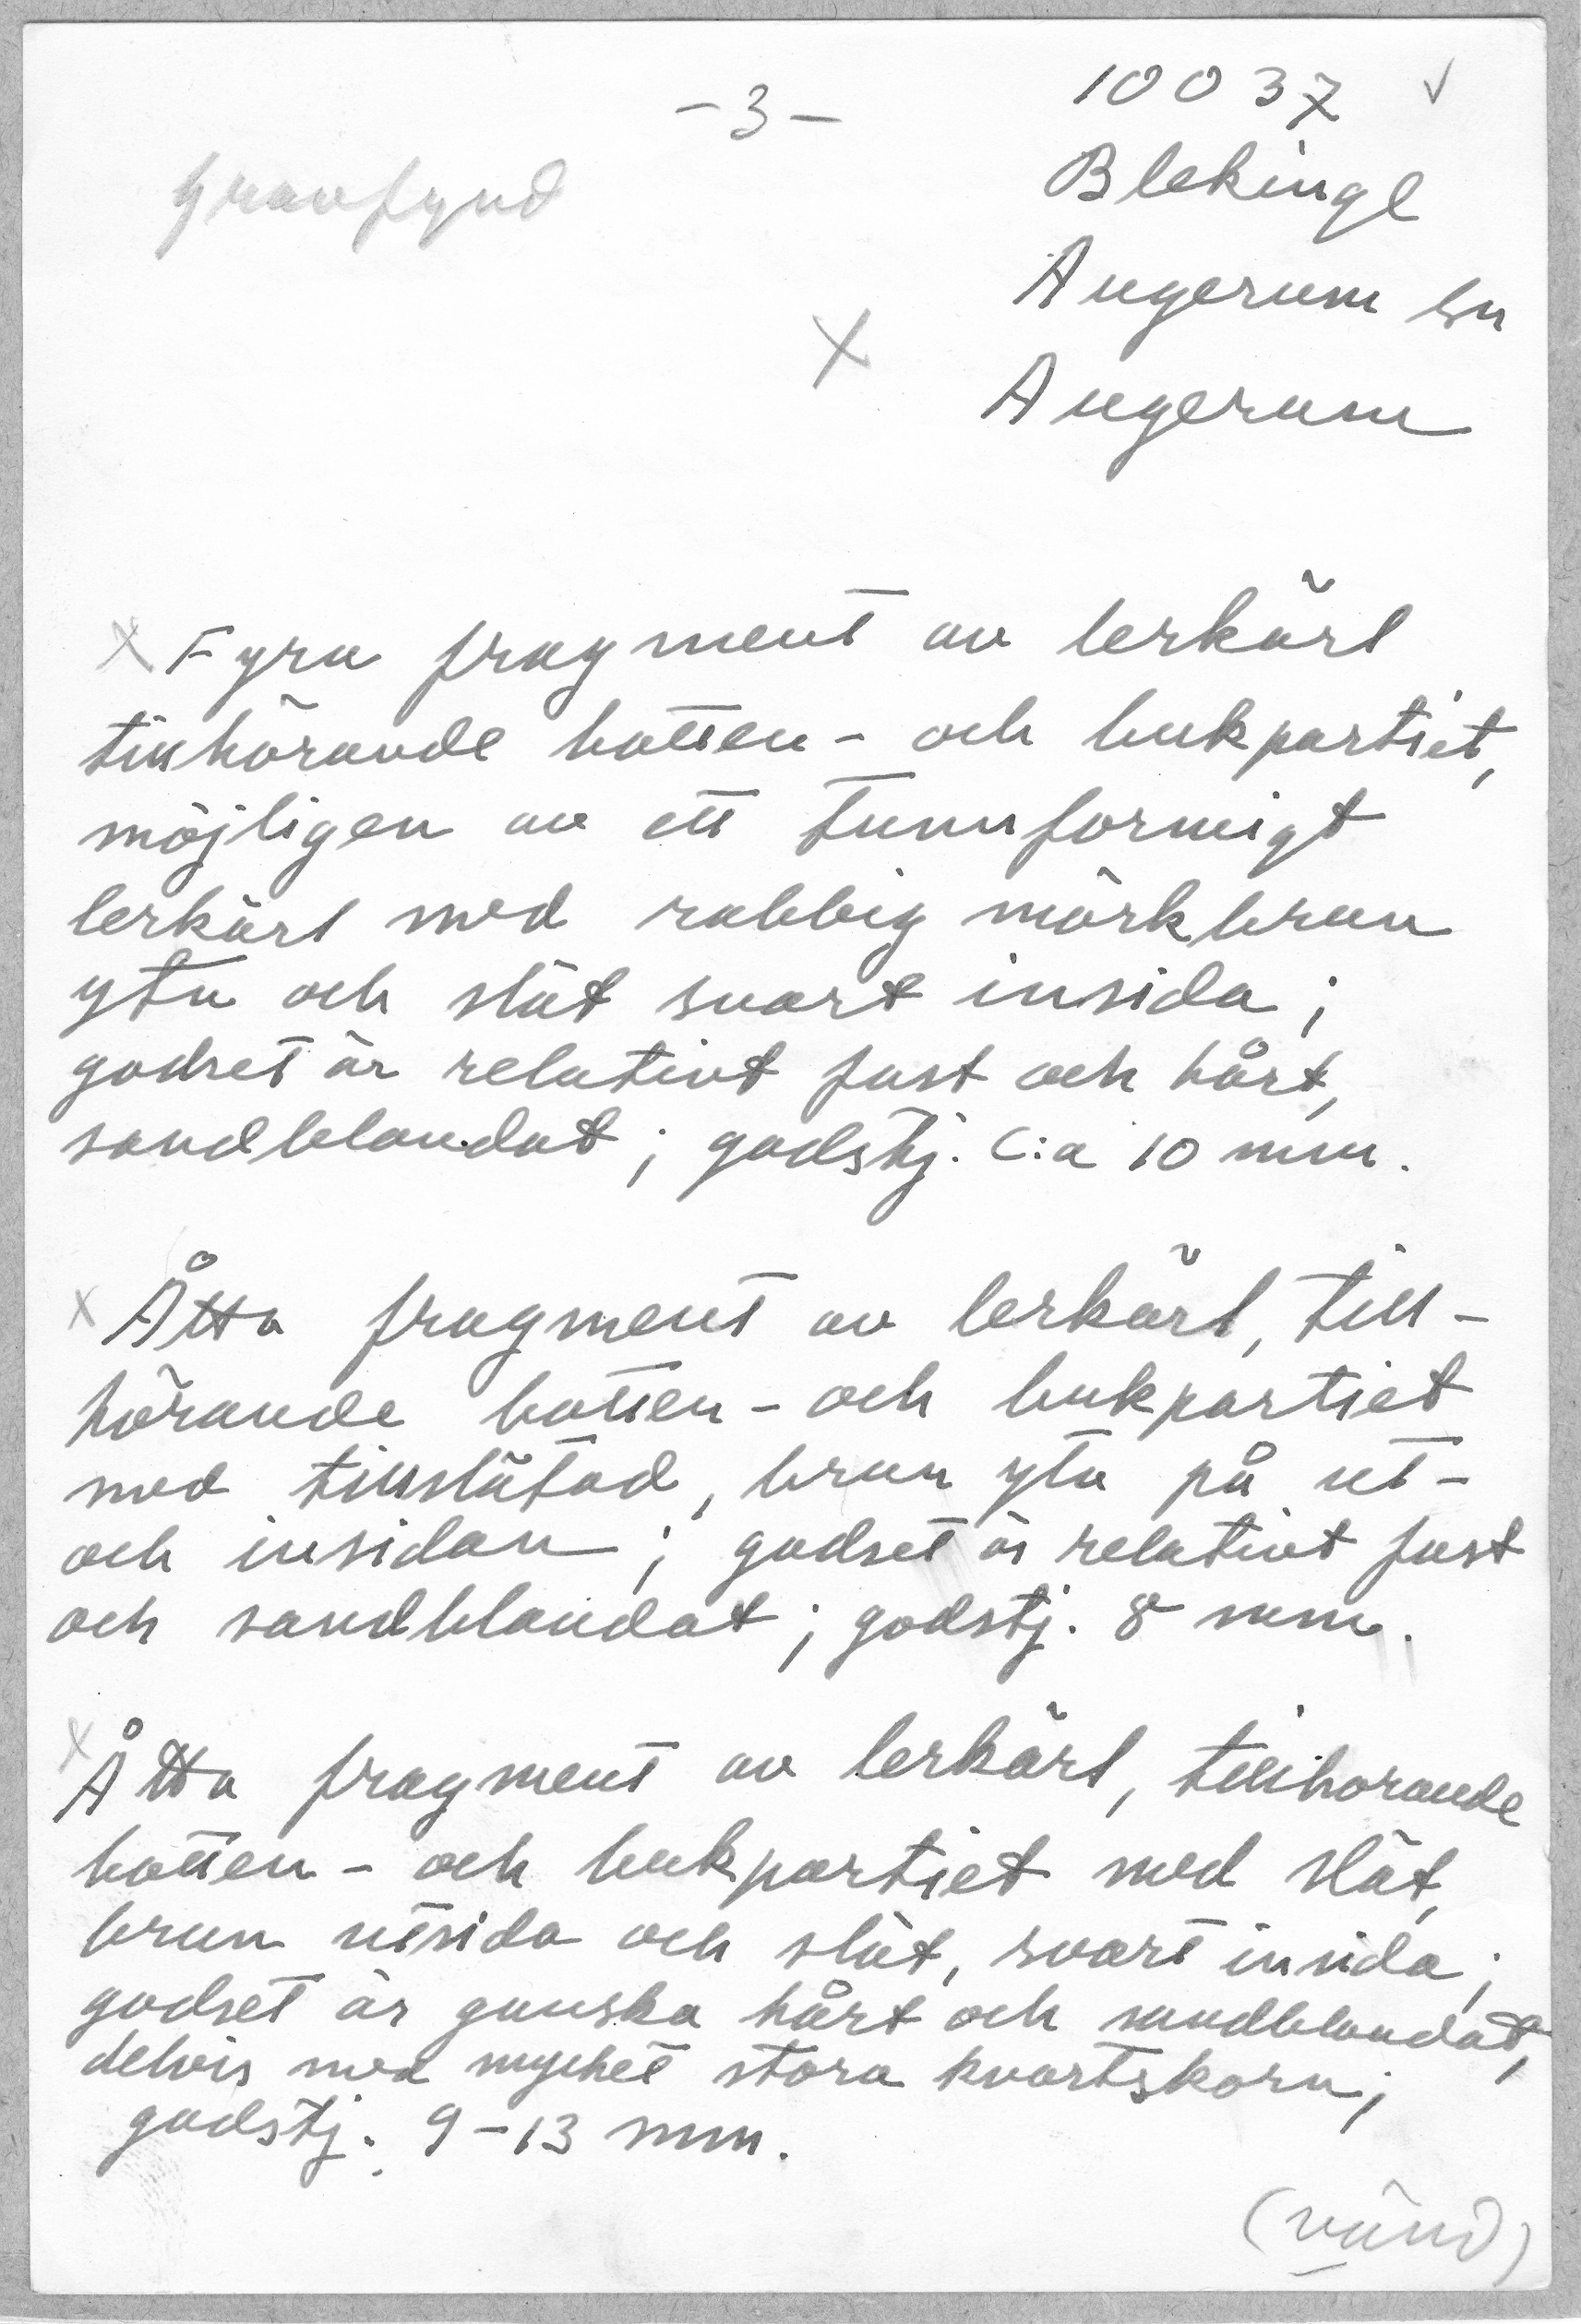 - 3 -
10037 ✓
Gravfynd
Blekinge
Augerum sn
X
Augerum
x Fyra fragment av lerkärl
tillhörande botten- och bukpartiet,
möjligen av ett tunnformigt
lerkärl med rabbig mörkbrun
yta och slät svart insida;
godset är relativt fast och hårt,
sandblandat; godstj. c:a 10 mm.
x Åtta fragment av lerkärl, till-
hörande botten- och bukpartiet
med tillslätad, brun yta på ut-
och insidan; godset är relativt fast
och sandblandat; godstj. 8 mm.
x Åtta fragment av lerkärl, tillhorande
botten- och bukpartiet med slät,
brun utsida och slät, svart insida;
godset är ganska hårt och sandblandat,
delvis med mycket stora kvartskorn;
godstj. 9-13 mm.
(vänd)